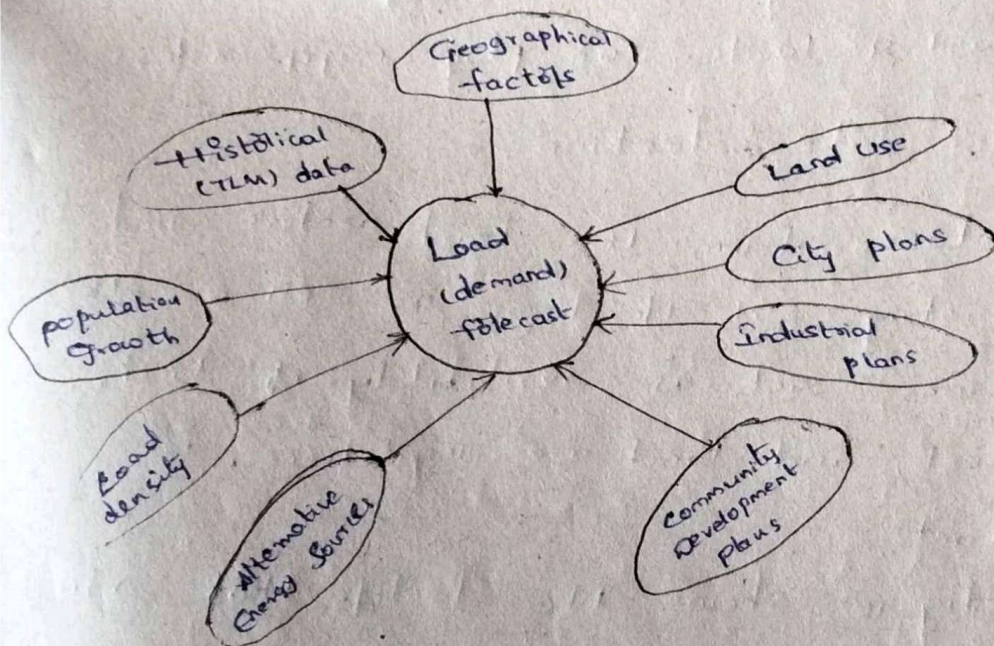 Geographical
factors
Historical
(TLM) data
Land use
City plans
Load
(demand)
forecast
population
growth
Industrial
plans
Load
density
Alternative
Energy Sources
Community
Development
plans